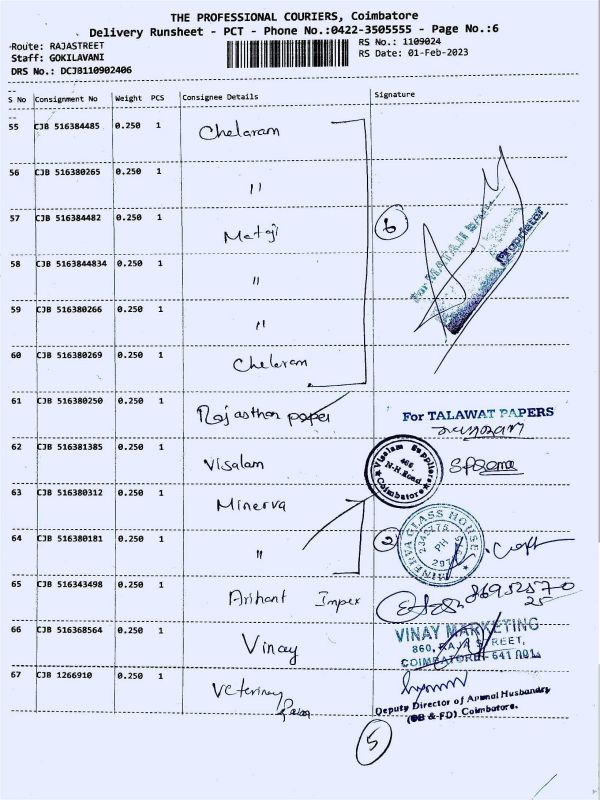 THE PROFESSIONAL COURIERS, Coimbatore
Delivery Runsheet - PCT - Phone No.:0422-3505555 - Page No.:6
Route: RAJASTREET
RS No.: 1109024
Staff: GOKILAVANI
RS Date: 01-Feb-2023
DRS No.: DCJB110902406
S No Consignment No Weight PCS Consignee Details Signature
55 CJB 516384485 0.250 1 Chelaram
56 CJB 516380265 0.250 1 "
57 CJB 516384482 0.250 1 Mataji
6
For MATAJI
Proprietor
58 CJB 5163844834 0.250 1 "
59 CJB 516380266 0.250 1 "
60 CJB 516380269 0.250 1 Chelaram
61 CJB 516380250 0.250 1 Rajasthan paper
For TALAWAT PAPERS
62 CJB 516381385 0.250 1 Visalam
Visalam Suppliers
466,
N.H.Road
Coimbatore
63 CJB 516380312 0.250 1 Minerva
64 CJB 516380181 0.250 1 "
2
MINERVA GLASS HOUSE
PH
65 CJB 516343498 0.250 1 Arihant Impex
66 CJB 516368564 0.250 1 Vinay
VINAY MARKETING
860, RAJA STREET,
COIMBATORE - 641 001.
67 CJB 1266910 0.250 1 Veterinary
Deputy Director of Animal Husbandry
(CB & FD) Coimbatore.
5